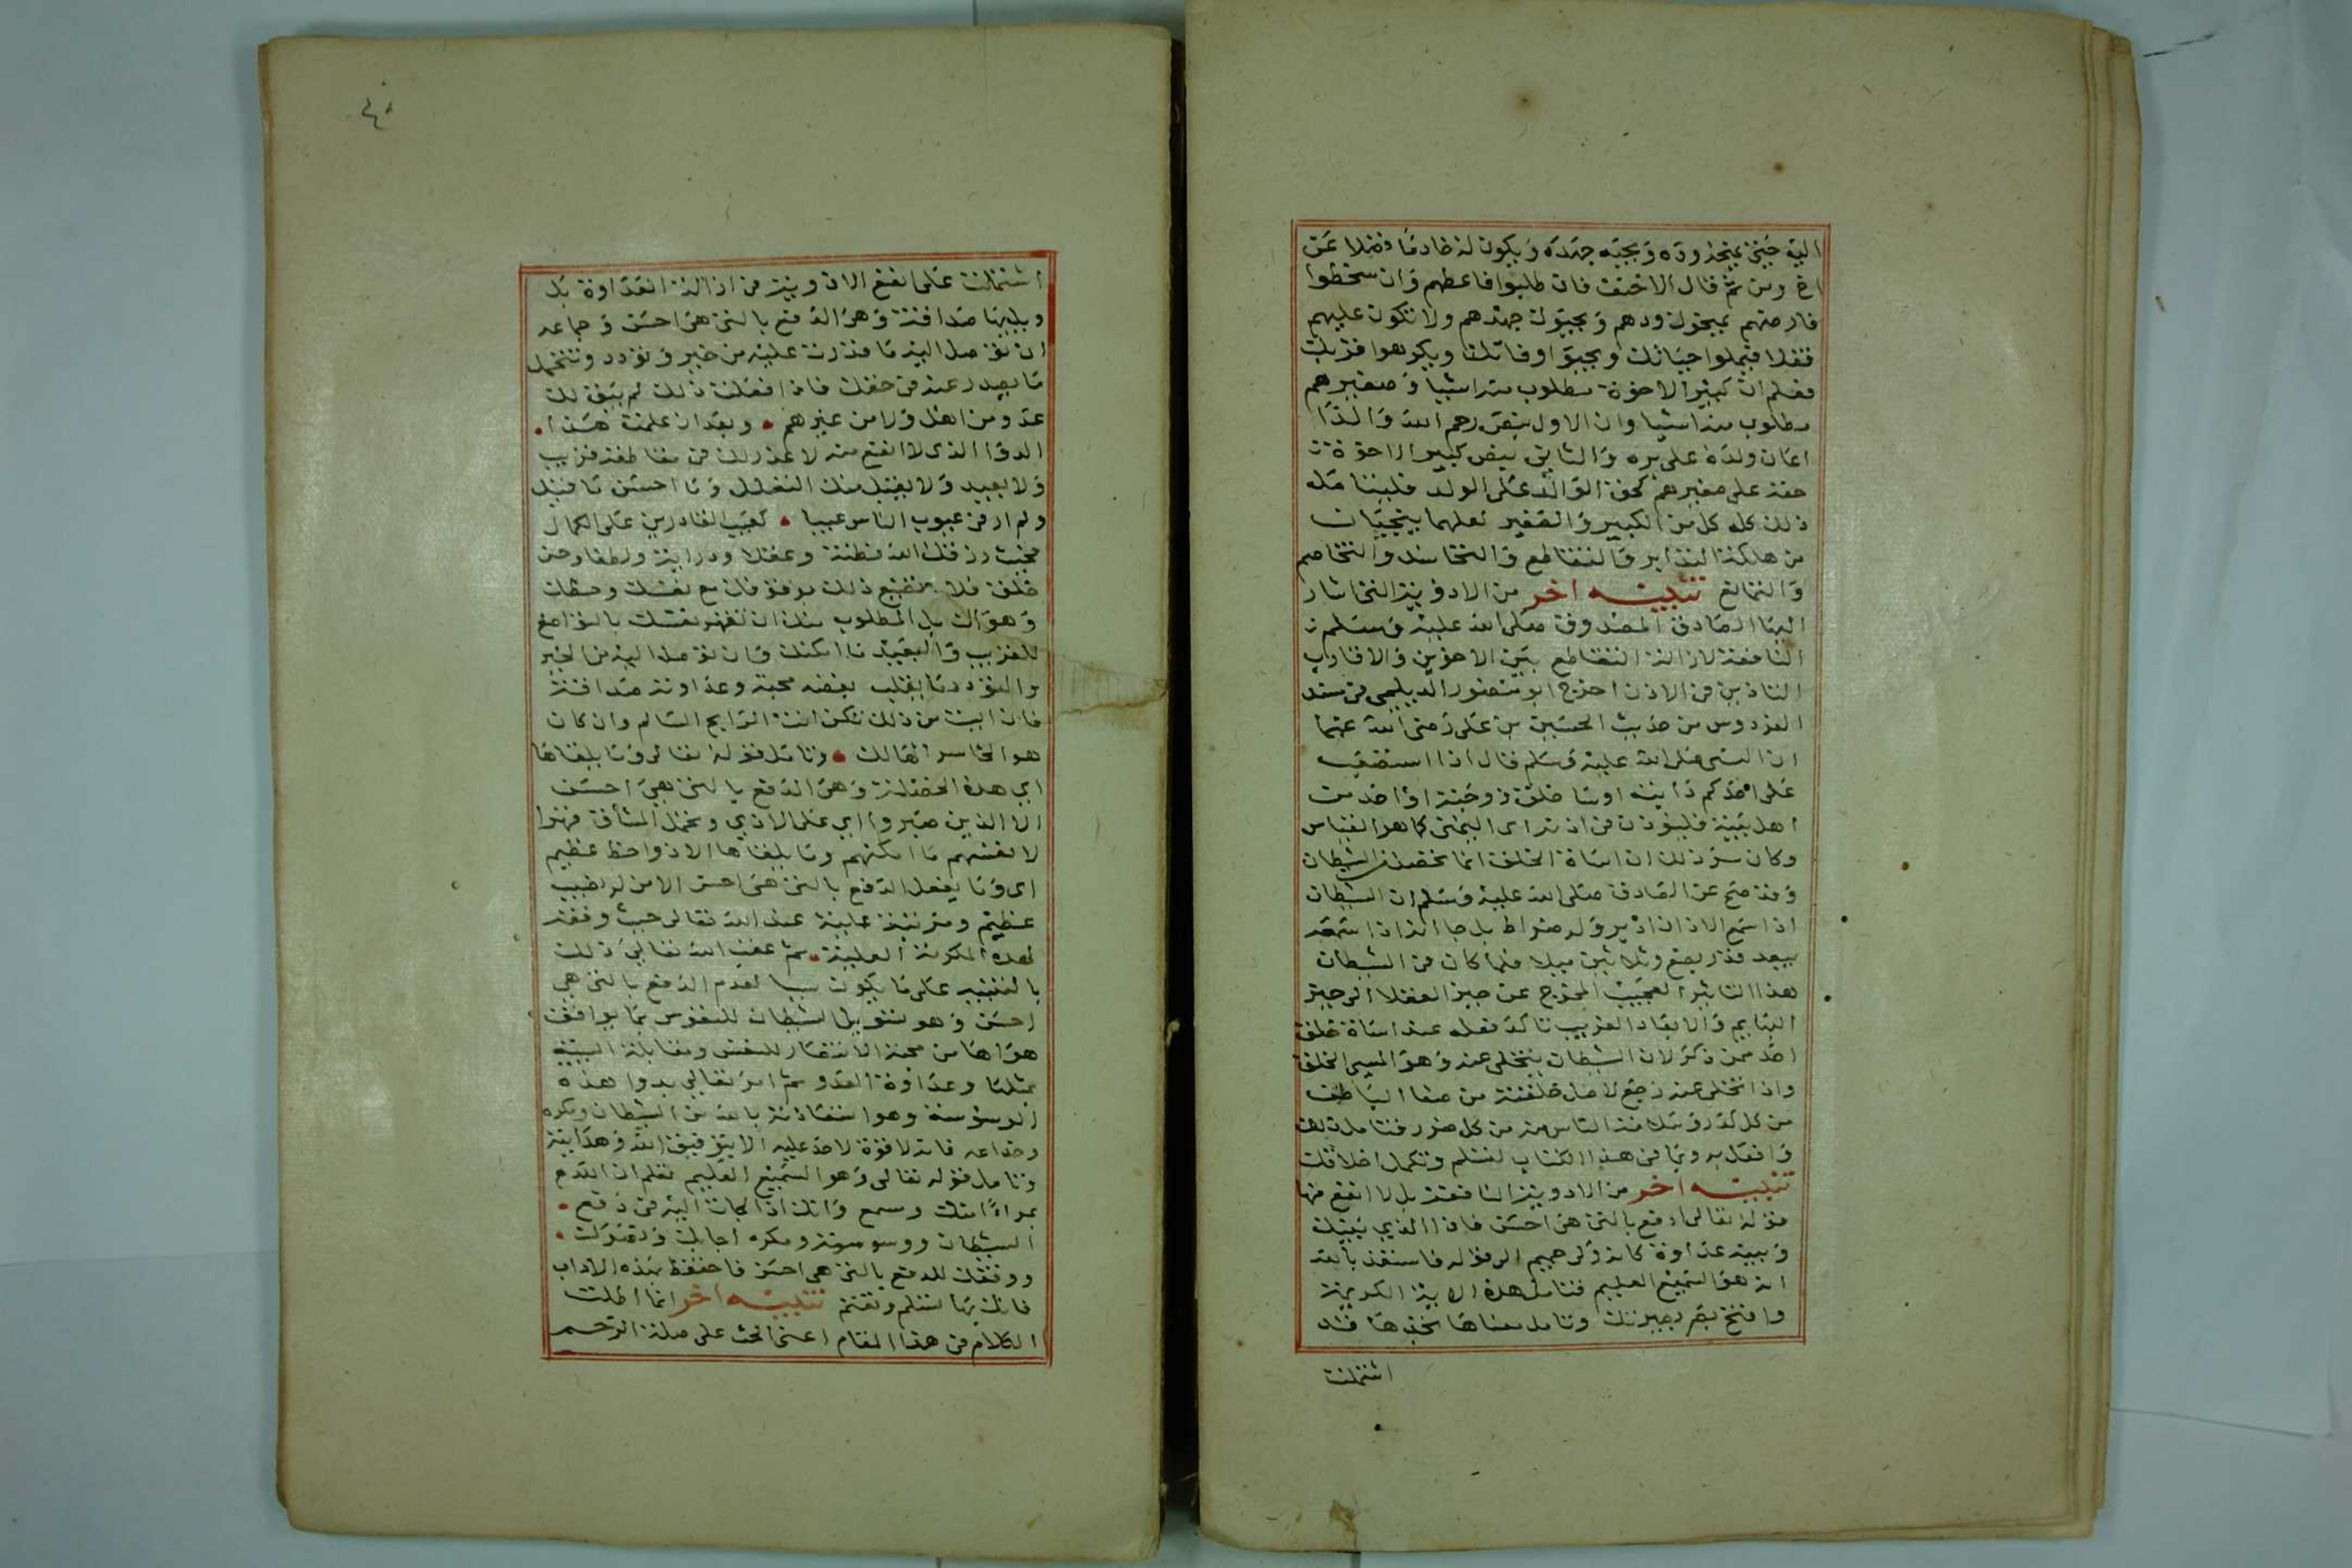 اليه حيني يمنحه وده ويحبه جهده ويكون له خادما فضلا عن
اخ ومن ثم قال الاحنف فان طلبوا فاعطهم وان سخطوا
فارضهم يمنحوك ودهم ويحبوك جهدهم ولا تكون عليهم
ثقلا فيملوا حياتك ويحبوا وفاتك ويكرهوا قربك
فعلم ان كبير الاخوة مطلوب منه اشيا وصغيرهم
مطلوب منه اشيا وان الاول بنص رحم الله والدا
اعان ولده على بره والثاني بنص كبير الاخوة
حقه على صغيرهم كحق الوالد على الولد فليتامله
ذلك كله كل من الكبير والصغير لعلهما ينجيان
من هلكة التدابر والتقاطع والتحاسد والتخاصم
والتمانع تنبيه اخر من الادوية التي اشار
اليها الصادق المصدوق صلى الله عليه وسلم
النافعة لازالة التقاطع بين الاخوين والاقارب
التاذين في الاذن اخرج ابو منصور الديلمي في مسند
الفردوس من حديث الحسين بن على رضي الله عنهما
ان النبي صلى الله عليه وسلم قال اذا استصعب
على احدكم دابته اوسا خلق زوجته او احد من
اهل بيته فليؤذن في اذنه اى اليمنى كما هو القياس
وكان سر ذلك ان اساة الخلق انما تحصل من الشيطان
وقد صح عن الصادق صلى الله عليه وسلم ان الشيطان
اذا سمع الاذان ادبر وله ضراط بل جا انه اذا سمعه
يبعد قدر بضع وثلاثين ميلا فلما كان في الشيطان
هذا التاثير العجيب المخرج عن حيز العقلا الى حيز
البهايم والابعاد الغريب تاكد فعله عند اساة خلق
احد ممن ذكر لان الشيطان يتخلى عنه وهو المسي الخلق
واذا تخلى عنه رجع لاصل خلقته من صفا الباطن
من كل كدر وسلامة الناس منه من كل ضرر فتامل ذلك
وافعل به وبما في هذا الكتاب لتسلم وتكمل اخلاقك
تنبيه اخر من الادوية النافعة بل لا انفع منها
قوله تعالى ادفع بالتي هي احسن فاذا الذي بينك
وبينه عداوة كانه ولي حميم الى قوله فاستعذ بالله
انه هو السميع العليم فتامل هذه الاية الكريمة
وافتح بصر بصيرتك وتامل معناها تجدها قد
اشتملت
٤٠
اشتملت على انفع الادوية في ازالة العداوة بل
وبليها صداقة وهو الدفع بالتي هي احسن وجماعه
ان توصل اليه ما قدرت عليه من خير وتودد وتتحمل
ما يصدر عنه في حقك فاذا فعلت ذلك لم يبق لك
عدو من اهل ولا من غيرهم وبعد ان علمت هذا
الدوا الذى لا انفع منه لا عذر لك في مقاطعة قريب
ولا بعيد ولا يقبل منك التعلل وما احسن ما قيل
ولم ار في عيوب الناس عيبا كعيب القادرين على الكمال
فحيث رزقك الله فطنة وعقلا ودراية ولطفا وحسن
خلق فلا تضيع ذلك بوقوفك مع نفسك وحظك
وهواك بل المطلوب منك ان تقهر نفسك بالتواضع
للقريب والبعيد ما امكنك وان توصل اليه من الخير
والتودد ما يقلب بغضه محبة وعداوته صداقة
فان ابيت من ذلك تكن انت الرابح السالم وان كان
هو الخاسر الهالك وتامل قوله تعالى وما يلقاها
اي هذه الخصلة وهي الدفع بالتي هي احسن
الا الذين صبروا اي على الاذي وتحمل المشاق قهرا
لانفسهم ما امكنهم وما يلقاها الا ذو حظ عظيم
اى وما يفعل الدفع بالتي هي احسن الا من له نصيب
عظيم ومرتبة علية عند الله تعالى حيث وفقه
لهذه المكرمة العلية ثم عقب الله تعالى ذلك
بالتنبيه على ما يكون سببا لعدم الدفع بالتي هي
احسن وهو تسويل الشيطان للنفوس بما يوافق
هواها من محبة الانتصار للنفس ومقابلة السيئة
بمثلها وعداوة العدو ثم امر تعالى بدوا هذه
الوسوسة وهو استعاذته بالله من الشيطان ومكره
وخداعه فانه لا قوة لاحد عليه الا بتوفيق الله وهدايته
وتامل قوله تعالى وهو السميع العليم تعلم ان الله مع
بمراا منك وسمع وانك اذا لجات اليه في دفع
الشيطان ووسوسته ومكره اجابك وتقبلك
ووفقك للدفع بالتي هي احسن فاحتفظ بهذه الاداب
فانك بها تسلم وتغنم تنبيه اخر انما اطلت
الكلام في هذا المقام اعني الحث على صلة الرحم